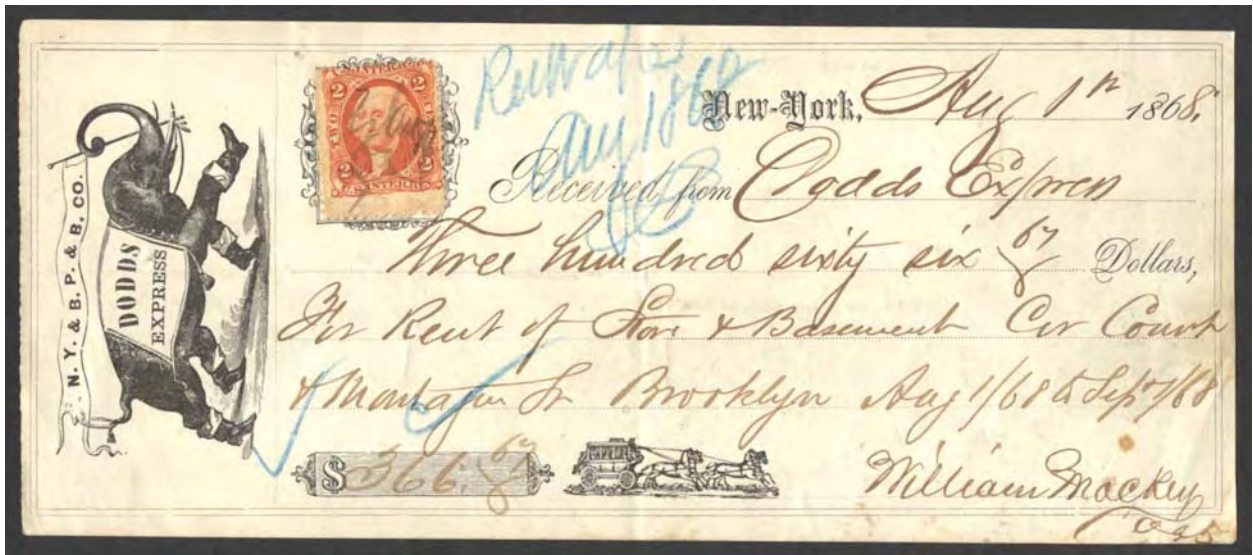 N. Y. & B. P. & B. CO.
DODDS
EXPRESS
U.S. INTER. REV.
2 2
TWO
2 2
Aug 1868
New-York, Aug 1st 1868.
Received from Dodds Express
Three hundred sixty six 67 Dollars,
For Rent of Store & Basement Cor Court
& Montague St Brooklyn Aug 1/68 to Sept 1/68
$ 366.67
William Mackey